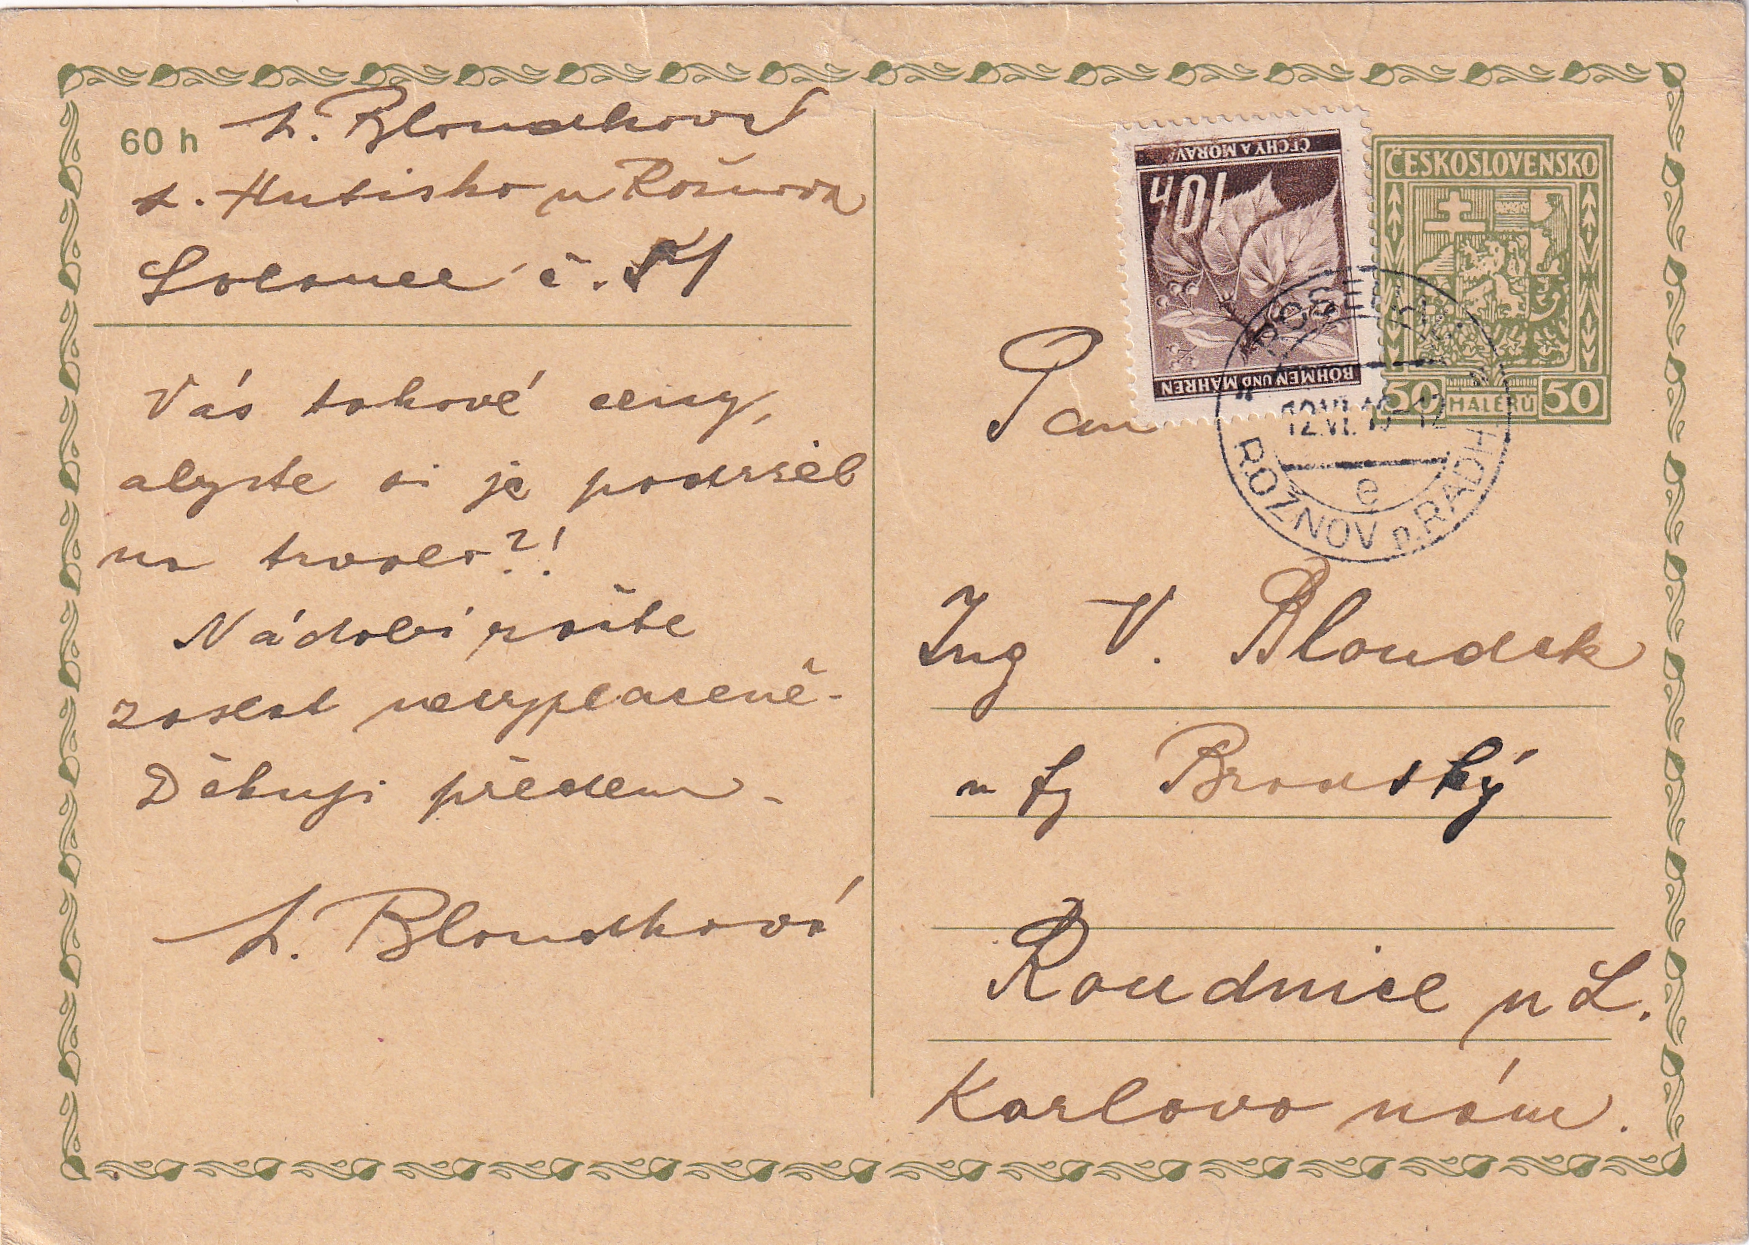 60 h L. Bloudková
p. Hutisko u Rožnova
Solanec č. 51
Vás takové ceny,
abyste si je podržel
na trvalo?!
Nádobí račte
zaslat nevyplaceně -
Děkuji předem -
L. Bloudková
ČESKOSLOVENSKO
50 HALÉŘŮ 50
ČECHY A MORAVA
40 h
BÖHMEN UND MÄHREN
12.VI.
e
ROŽNOV p. RADH.
Pan
Ing V. Bloudek
u fy Brodský
Roudnice n L.
Karlovo nám.